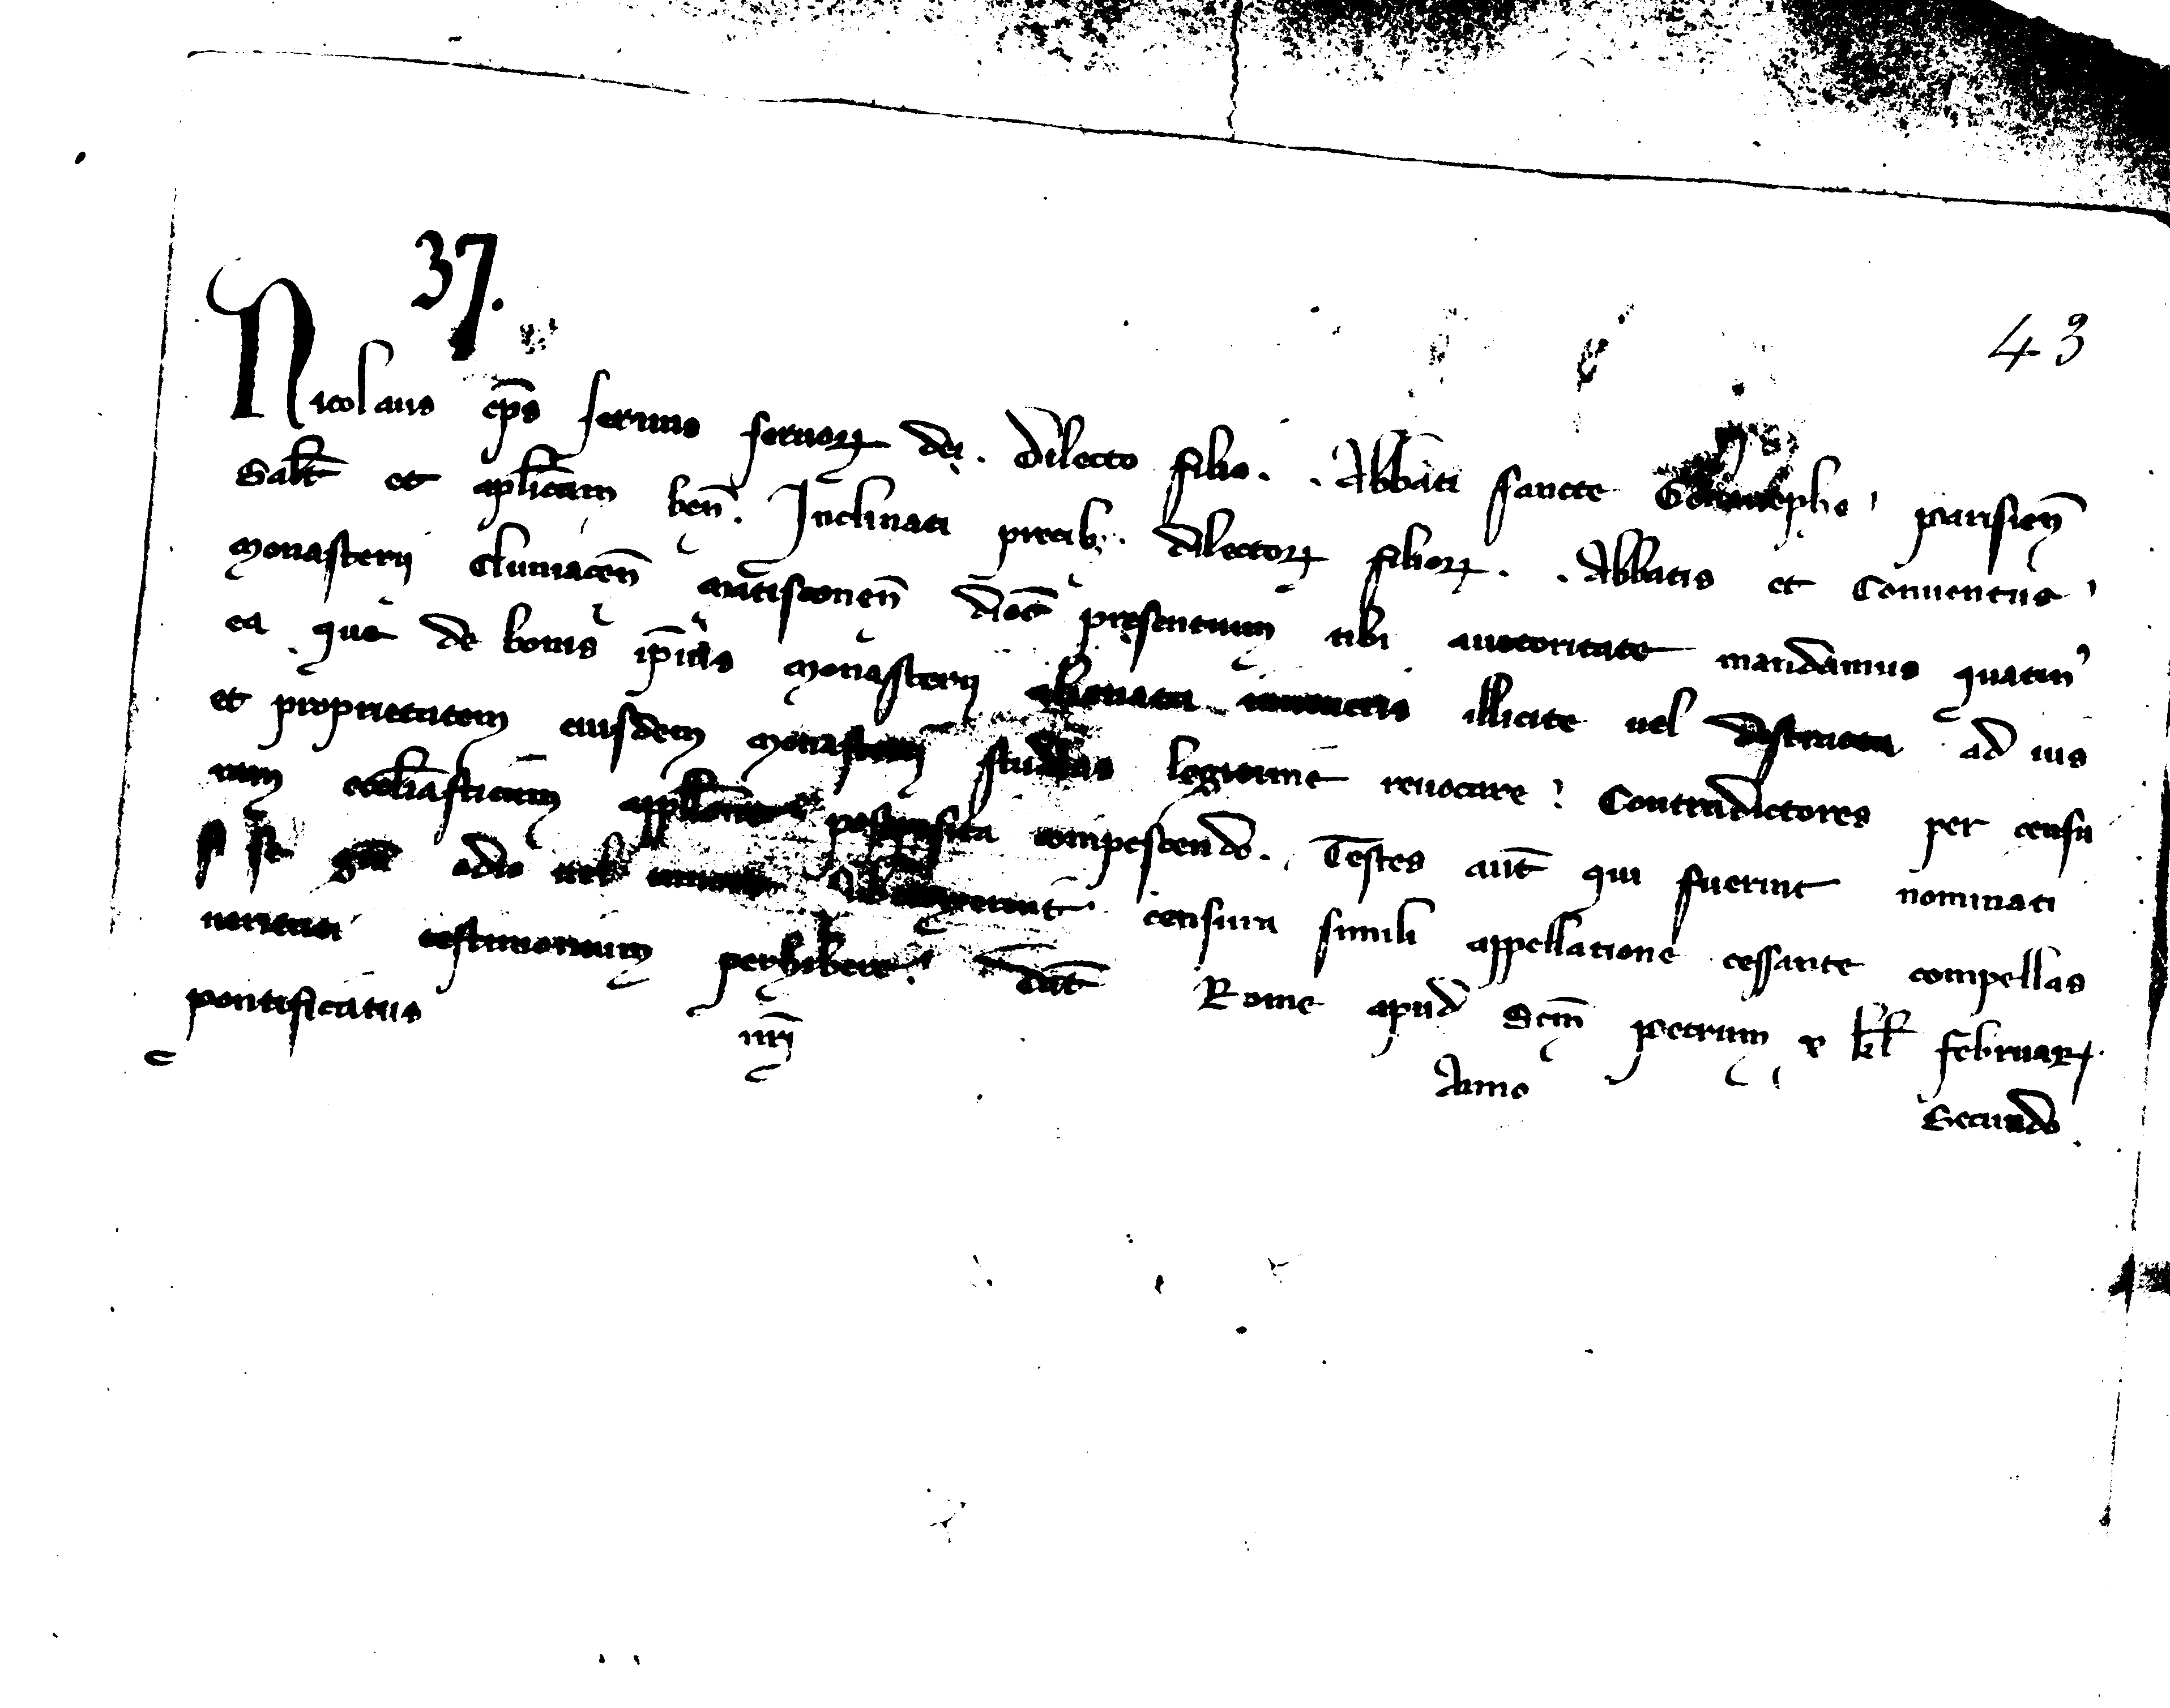 37.
43
Nicolaus ep̄s seruus seruoꝝ dei. Dilecto filio. . Abbati sancte Genouephe parisien̄
Salt̄ et aplicam ben̄. Inclinati precib; dilectoꝝ filioꝝ. . Abbatis et Conuentus
Monasterij Cluniacen̄ Matisconen̄ dioc̄ presentium tibi auctoritate mandamus quatin⁹
ea que de bonis ip̄ius Monasterij alienata inueneris illicite uel distracta ad ius
et proprietatem eiusdem Monasterij studeas legitime reuocare: Contradictores per censu
ram ecclīasticam appellōne postposita compescendo. Testes aut̄ qui fuerint nominati
si se gr̄a odio uel timore subtraxerint censura simili appellatione cessante compellas
ueritati testimonium perhibere. Dat̄ Rome apud Scm̄ Petrum x kl̄ februaꝝ
pontificatus nr̄i Anno Secundo.